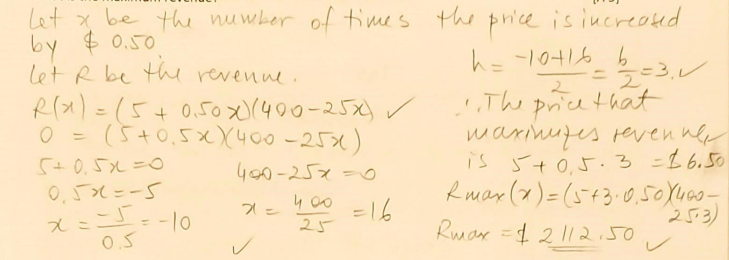 Let x be the number of times the price is increased
by $ 0.50
Let R be the revenue.
R(x) = (5 + 0.50x)(400-25x) ✓
0 = (5+0.5x)(400-25x)
5+0.5x=0
0.5x=-5
x = -5/0.5 = -10
400-25x=0
x = 400/25 = 16
✓
h = -10+16/2 = 6/2 = 3 ✓
∴ The price that
maximizes revenue
is 5+0.5·3 = $6.50
Rmax(x)=(5+3·0.50)(400-
25·3)
Rmax = $ 2112.50 ✓